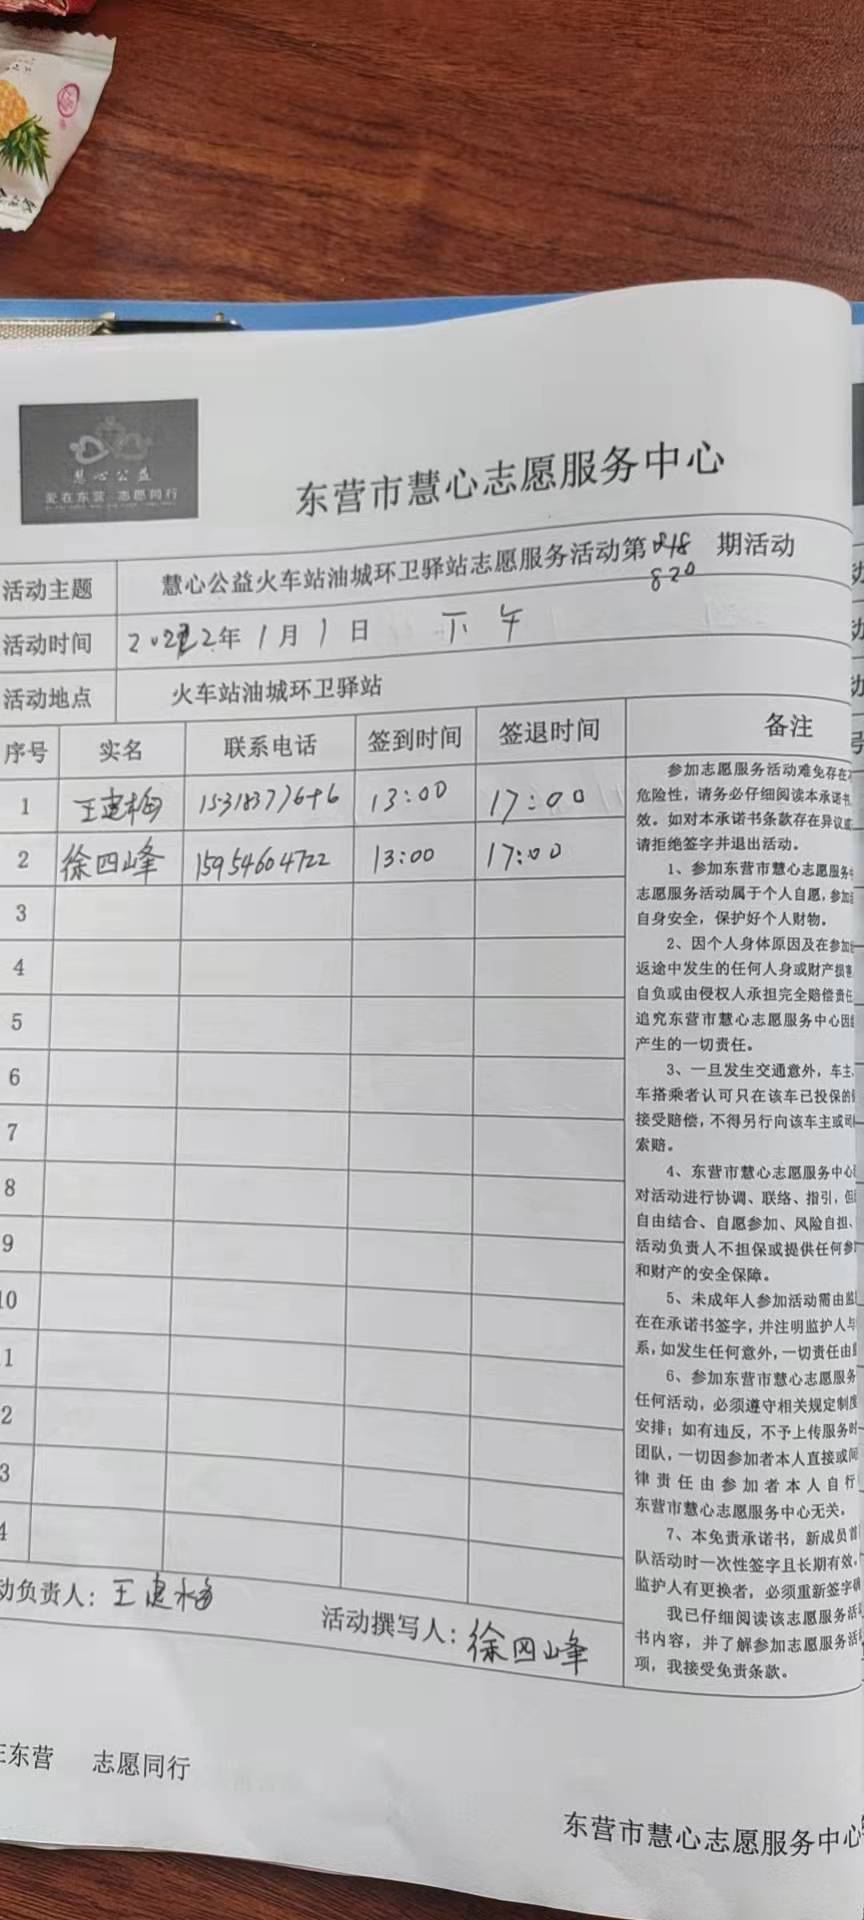 慧心公益
爱在东营 志愿同行
东营市慧心志愿服务中心
活动主题 慧心公益火车站油城环卫驿站志愿服务活动第818期活动
820
活动时间 2022年1月1日 下午
活动地点 火车站油城环卫驿站
序号 实名 联系电话 签到时间 签退时间 备注
1 王建梅 15318377646 13:00 17:00
2 徐四峰 15954604722 13:00 17:00
3
4
5
6
7
8
9
10
1
2
3
4
参加志愿服务活动难免存在
危险性，请务必仔细阅读本承诺书
效。如对本承诺书条款存在异议
请拒绝签字并退出活动。
1、参加东营市慧心志愿服务
志愿服务活动属于个人自愿，参加
自身安全，保护好个人财物。
2、因个人身体原因及在参加
返途中发生的任何人身或财产损害
自负或由侵权人承担完全赔偿责任
追究东营市慧心志愿服务中心因
产生的一切责任。
3、一旦发生交通意外，车主、
车搭乘者认可只在该车已投保的
接受赔偿，不得另行向该车主或司
索赔。
4、东营市慧心志愿服务中心
对活动进行协调、联络、指引，但
自由结合、自愿参加、风险自担、
活动负责人不担保或提供任何参
和财产的安全保障。
5、未成年人参加活动需由监
在在承诺书签字，并注明监护人与
系，如发生任何意外，一切责任由
6、参加东营市慧心志愿服务
任何活动，必须遵守相关规定制度
安排；如有违反，不予上传服务时
团队，一切因参加者本人直接或间
律责任由参加者本人自行
东营市慧心志愿服务中心无关。
7、本免责承诺书，新成员首
队活动时一次性签字且长期有效，
监护人有更换者，必须重新签字确
我已仔细阅读该志愿服务活
书内容，并了解参加志愿服务活
项，我接受免责条款。
动负责人：王建梅
活动撰写人：徐四峰
东营 志愿同行
东营市慧心志愿服务中心